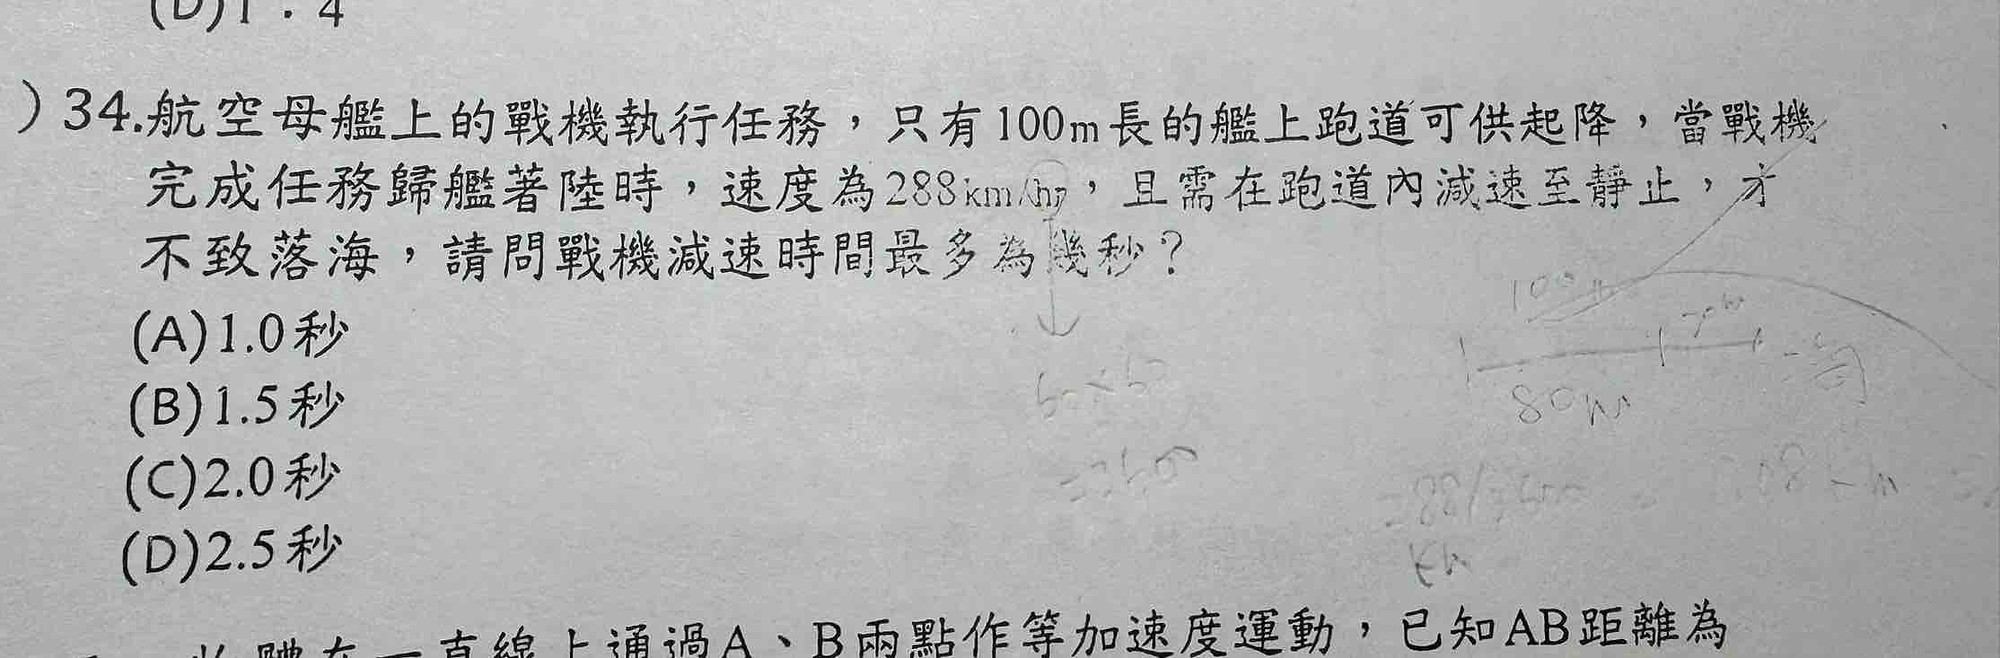 (D)1：4
)34.航空母艦上的戰機執行任務，只有100m長的艦上跑道可供起降，當戰機
完成任務歸艦著陸時，速度為288km/hr，且需在跑道內減速至靜止，才
不致落海，請問戰機減速時間最多為幾秒？
(A)1.0秒
(B)1.5秒
(C)2.0秒
(D)2.5秒
直線上通過A、B兩點作等加速度運動，已知AB距離為